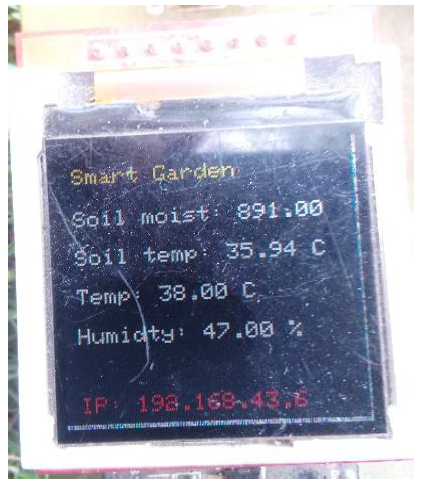 Smart Garden
Soil moist: 891.00
Soil temp: 35.94 C
Temp: 38.00 C
Humidty: 47.00 %
IP: 192.168.43.6